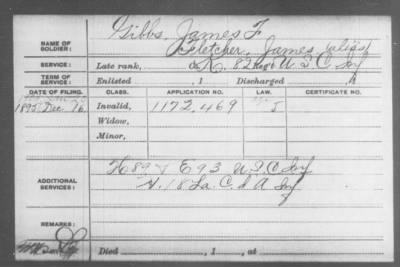 Gibbs, James F
NAME OF SOLDIER: Fletcher, James (alias)
SERVICE: Late rank, K, 82 Reg't U S C Inf
TERM OF SERVICE: Enlisted , 1 Discharged , 1
DATE OF FILING. CLASS. APPLICATION NO. LAW. CERTIFICATE NO.
1895 Dec. 16. Invalid, 1172,469 J
Widow,
Minor,
ADDITIONAL SERVICES: H 89 & E 93 U.S.C Inf
H. 18 La. C. d A Inf
REMARKS:
Died , 1 , at